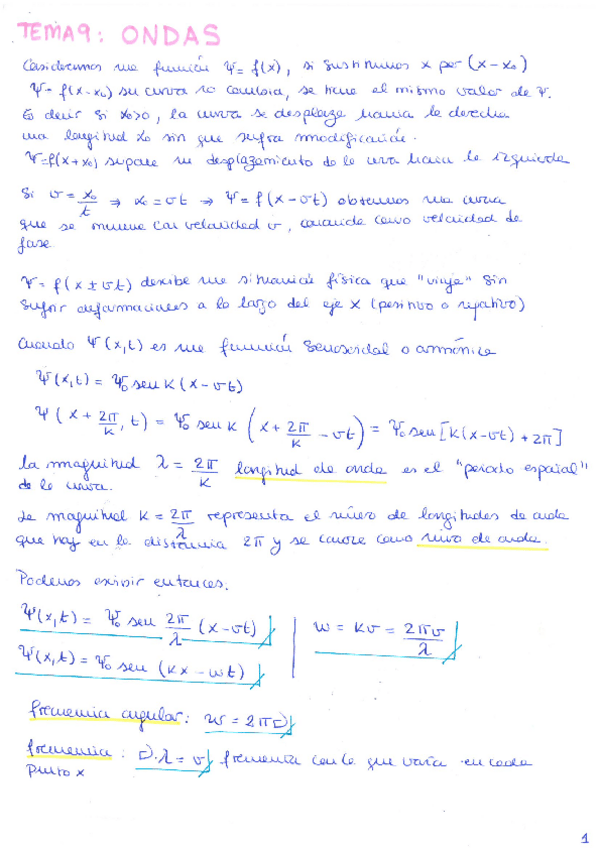 TEMA 9: ONDAS
Consideremos una función Ψ = f(x), si sustituimos x por (x - x₀)
Ψ = f(x-x₀) su curva no cambia, se tiene el mismo valor de Ψ.
Es decir si x₀>0, la curva se desplaza hacia la derecha
una longitud x₀ sin que sufra modificación.
Ψ=f(x+x₀) supone un desplazamiento de la curva hacia la izquierda
Si v = x₀/t ⇒ x₀ = vt ⇒ Ψ = f(x - vt) obtenemos una curva
que se mueve con velocidad v, conocida como velocidad de
fase.
Ψ = f(x ± vt) describe una situación física que "viaja" sin
sufrir deformaciones a lo largo del eje x (positivo o negativo)
Cuando Ψ(x,t) es una función senoseidal o armónica
Ψ(x,t) = Ψ₀ sen k (x - vt)
Ψ(x + 2π/k, t) = Ψ₀ sen k (x + 2π/k - vt) = Ψ₀ sen [k(x-vt) + 2π]
la magnitud λ = 2π/k longitud de onda es el "periodo espacial"
de la curva.
La magnitud k = 2π/λ representa el núm de longitudes de onda
que hay en la distancia 2π y se conoce como núm de onda.
Podemos escribir entonces:
Ψ(x,t) = Ψ₀ sen 2π/λ (x - vt) w = kv = 2πv/λ
Ψ(x,t) = Ψ₀ sen (kx - wt)
frecuencia angular: w = 2πν
frecuencia: ν·λ = v frecuencia con la que varía en cada
punto x
1